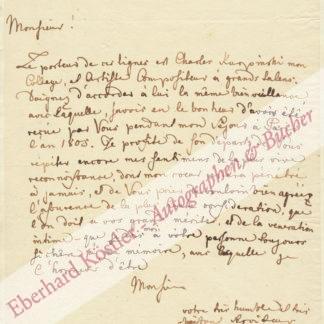 Monsieur !
Le porteur de ces lignes est Charles Kurpinski mon
Collegue, et Artiste Compositeur à grands talens.
Daignez d'accorder à lui la même bienveillance
avec laquelle, j'avois eu le bonheur d'avoir été
reçue par Vous pendant mon séjour à
l'an 1805. Je profite de son départ, Vous
repeter encore mes sentimens de la vive
reconnoissance, dont mon coeur sera penetré
à jamais, et de Vous prier vouloir bien agréer
l'assurance de la plus consideration, que
l'on doit a vos grands mérite, et de la veneration
intime que mon a votre personne toujours
memoire, avec laquelle j'
l'honneur d'être
Monsieur
votre très humble et très
Eberhard Köstler Autographen & Bücher